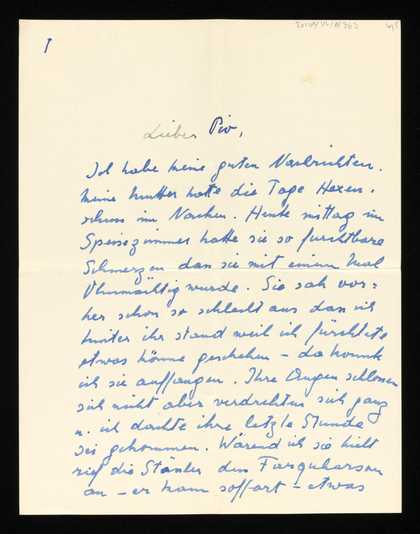 I
Lieber Piv,
Ich habe keine guten Nachrichten.
Meine Mutter hatte die Tage Hexen-
schuss im Nacken. Heute mittag im
Speisezimmer hatte sie so furchtbare
Schmerzen dan sie mit einem Mal
Ohnmächtig wurde. Sie sah vor=
her schon so schlecht aus dan ich
hinter ihr stand weil ich fürchtete
etwas könne geschehen – da konnte
ich sie auffangen. Ihre Augen schlossen
sich nicht aber verdrehten sich ganz
u. ich dachte ihre letzte Stunde
sei gekommen. Wärend ich sie hielt
rief die Stänler den Farquharson
an – er kam soffort – etwas